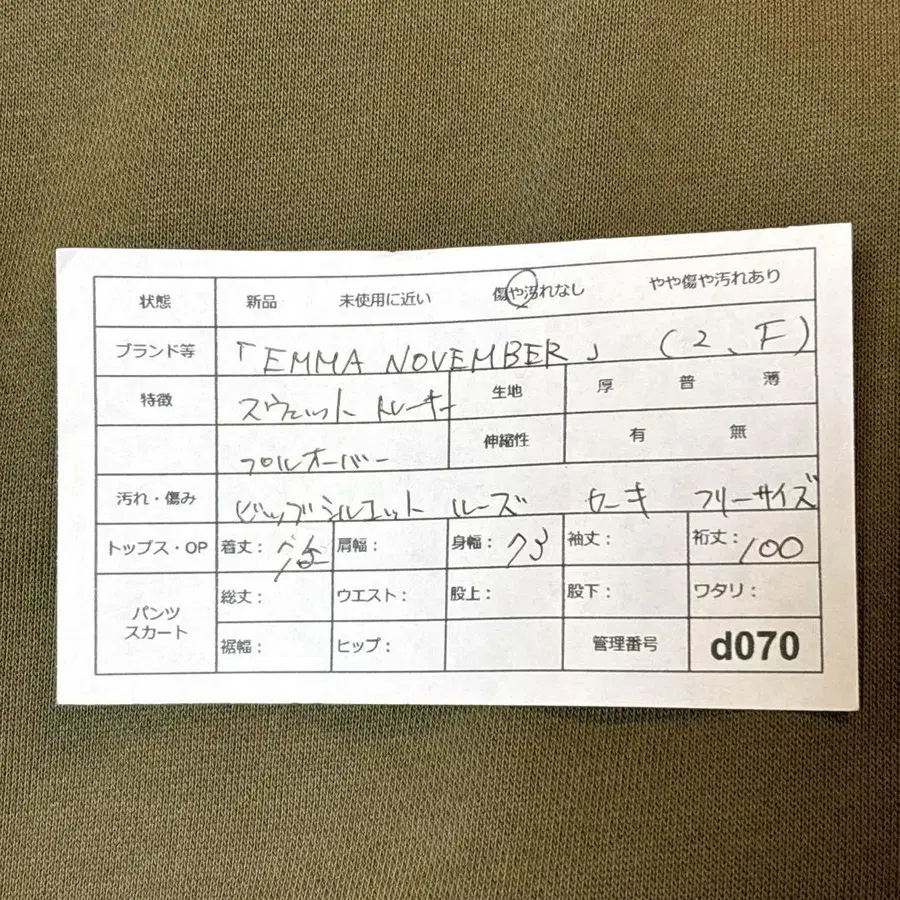 状態 新品 未使用に近い 傷や汚れなし やや傷や汚れあり
ブランド等 「EMMA NOVEMBER」 (2、F)
特徴 スウェット トレーナー 生地 厚 普 薄
プルオーバー 伸縮性 有 無
汚れ・傷み ビッグシルエット ルーズ カーキ フリーサイズ
トップス・OP 着丈: 肩幅: 身幅: 73 袖丈: 裄丈: 100
パンツ スカート 総丈: ウエスト: 股上: 股下: ワタリ:
裾幅: ヒップ: 管理番号 d070